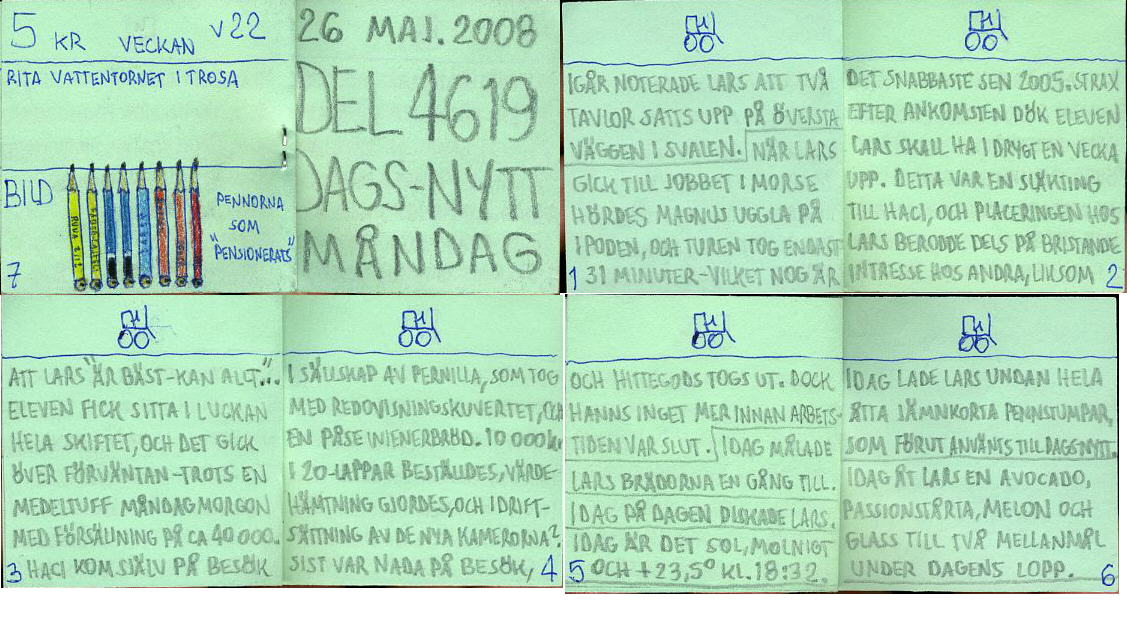 5 KR VECKAN V22
RITA VATTENTORNET I TROSA
BILD
PENNORNA
SOM
"PENSIONERATS"
7
26 MAJ. 2008
DEL 4619
DAGS-NYTT
MÅNDAG
IGÅR NOTERADE LARS ATT TVÅ
TAVLOR SATTS UPP PÅ ÖVERSTA
VÄGGEN I SVALEN. NÄR LARS
GICK TILL JOBBET I MORSE
HÖRDES MAGNUS UGGLA PÅ
IPODEN, OCH TUREN TOG ENDAST
31 MINUTER-VILKET NOG ÄR
1
DET SNABBASTE SEN 2005. STRAX
EFTER ANKOMSTEN DÖK ELEVEN
LARS SKALL HA I DRYGT EN VECKA
UPP. DETTA VAR EN SLÄKTING
TILL HACI, OCH PLACERINGEN HOS
LARS BERODDE DELS PÅ BRISTANDE
INTRESSE HOS ANDRA, LIKSOM
2
ATT LARS "ÄR BÄST-KAN ALLT"...
ELEVEN FICK SITTA I LUCKAN
HELA SKIFTET, OCH DET GICK
ÖVER FÖRVÄNTAN-TROTS EN
MEDELTUFF MÅNDAGMORGON
MED FÖRSÄLJNING PÅ CA 40 000.
HACI KOM SJÄLV PÅ BESÖK
3
I SÄLLSKAP AV PERNILLA, SOM TOG
MED REDOVISNINGSKUVERTET, OCH
EN PÅSE WIENERBRÖD. 10 000 kr
I 20-LAPPAR BESTÄLLDES, VÄRDE-
HÄMTNING GJORDES, OCH IDRIFT-
SÄTTNING AV DE NYA KAMERORNA?
SIST VAR NADA PÅ BESÖK,
4
OCH HITTEGODS TOGS UT. DOCK
HANNS INGET MER INNAN ARBETS-
TIDEN VAR SLUT. IDAG MÅLADE
LARS BRÄDORNA EN GÅNG TILL.
IDAG PÅ DAGEN DISKADE LARS.
IDAG ÄR DET SOL, MOLNIGT
OCH +23,5° KL. 18:32.
5
IDAG LADE LARS UNDAN HELA
ÅTTA JÄMNKORTA PENNSTUMPAR,
SOM FÖRUT ANVÄNTS TILL DAGSNYTT.
IDAG ÅT LARS EN AVOCADO,
PASSIONSTÅRTA, MELON OCH
GLASS TILL TVÅ MELLANMÅL
UNDER DAGENS LOPP.
6